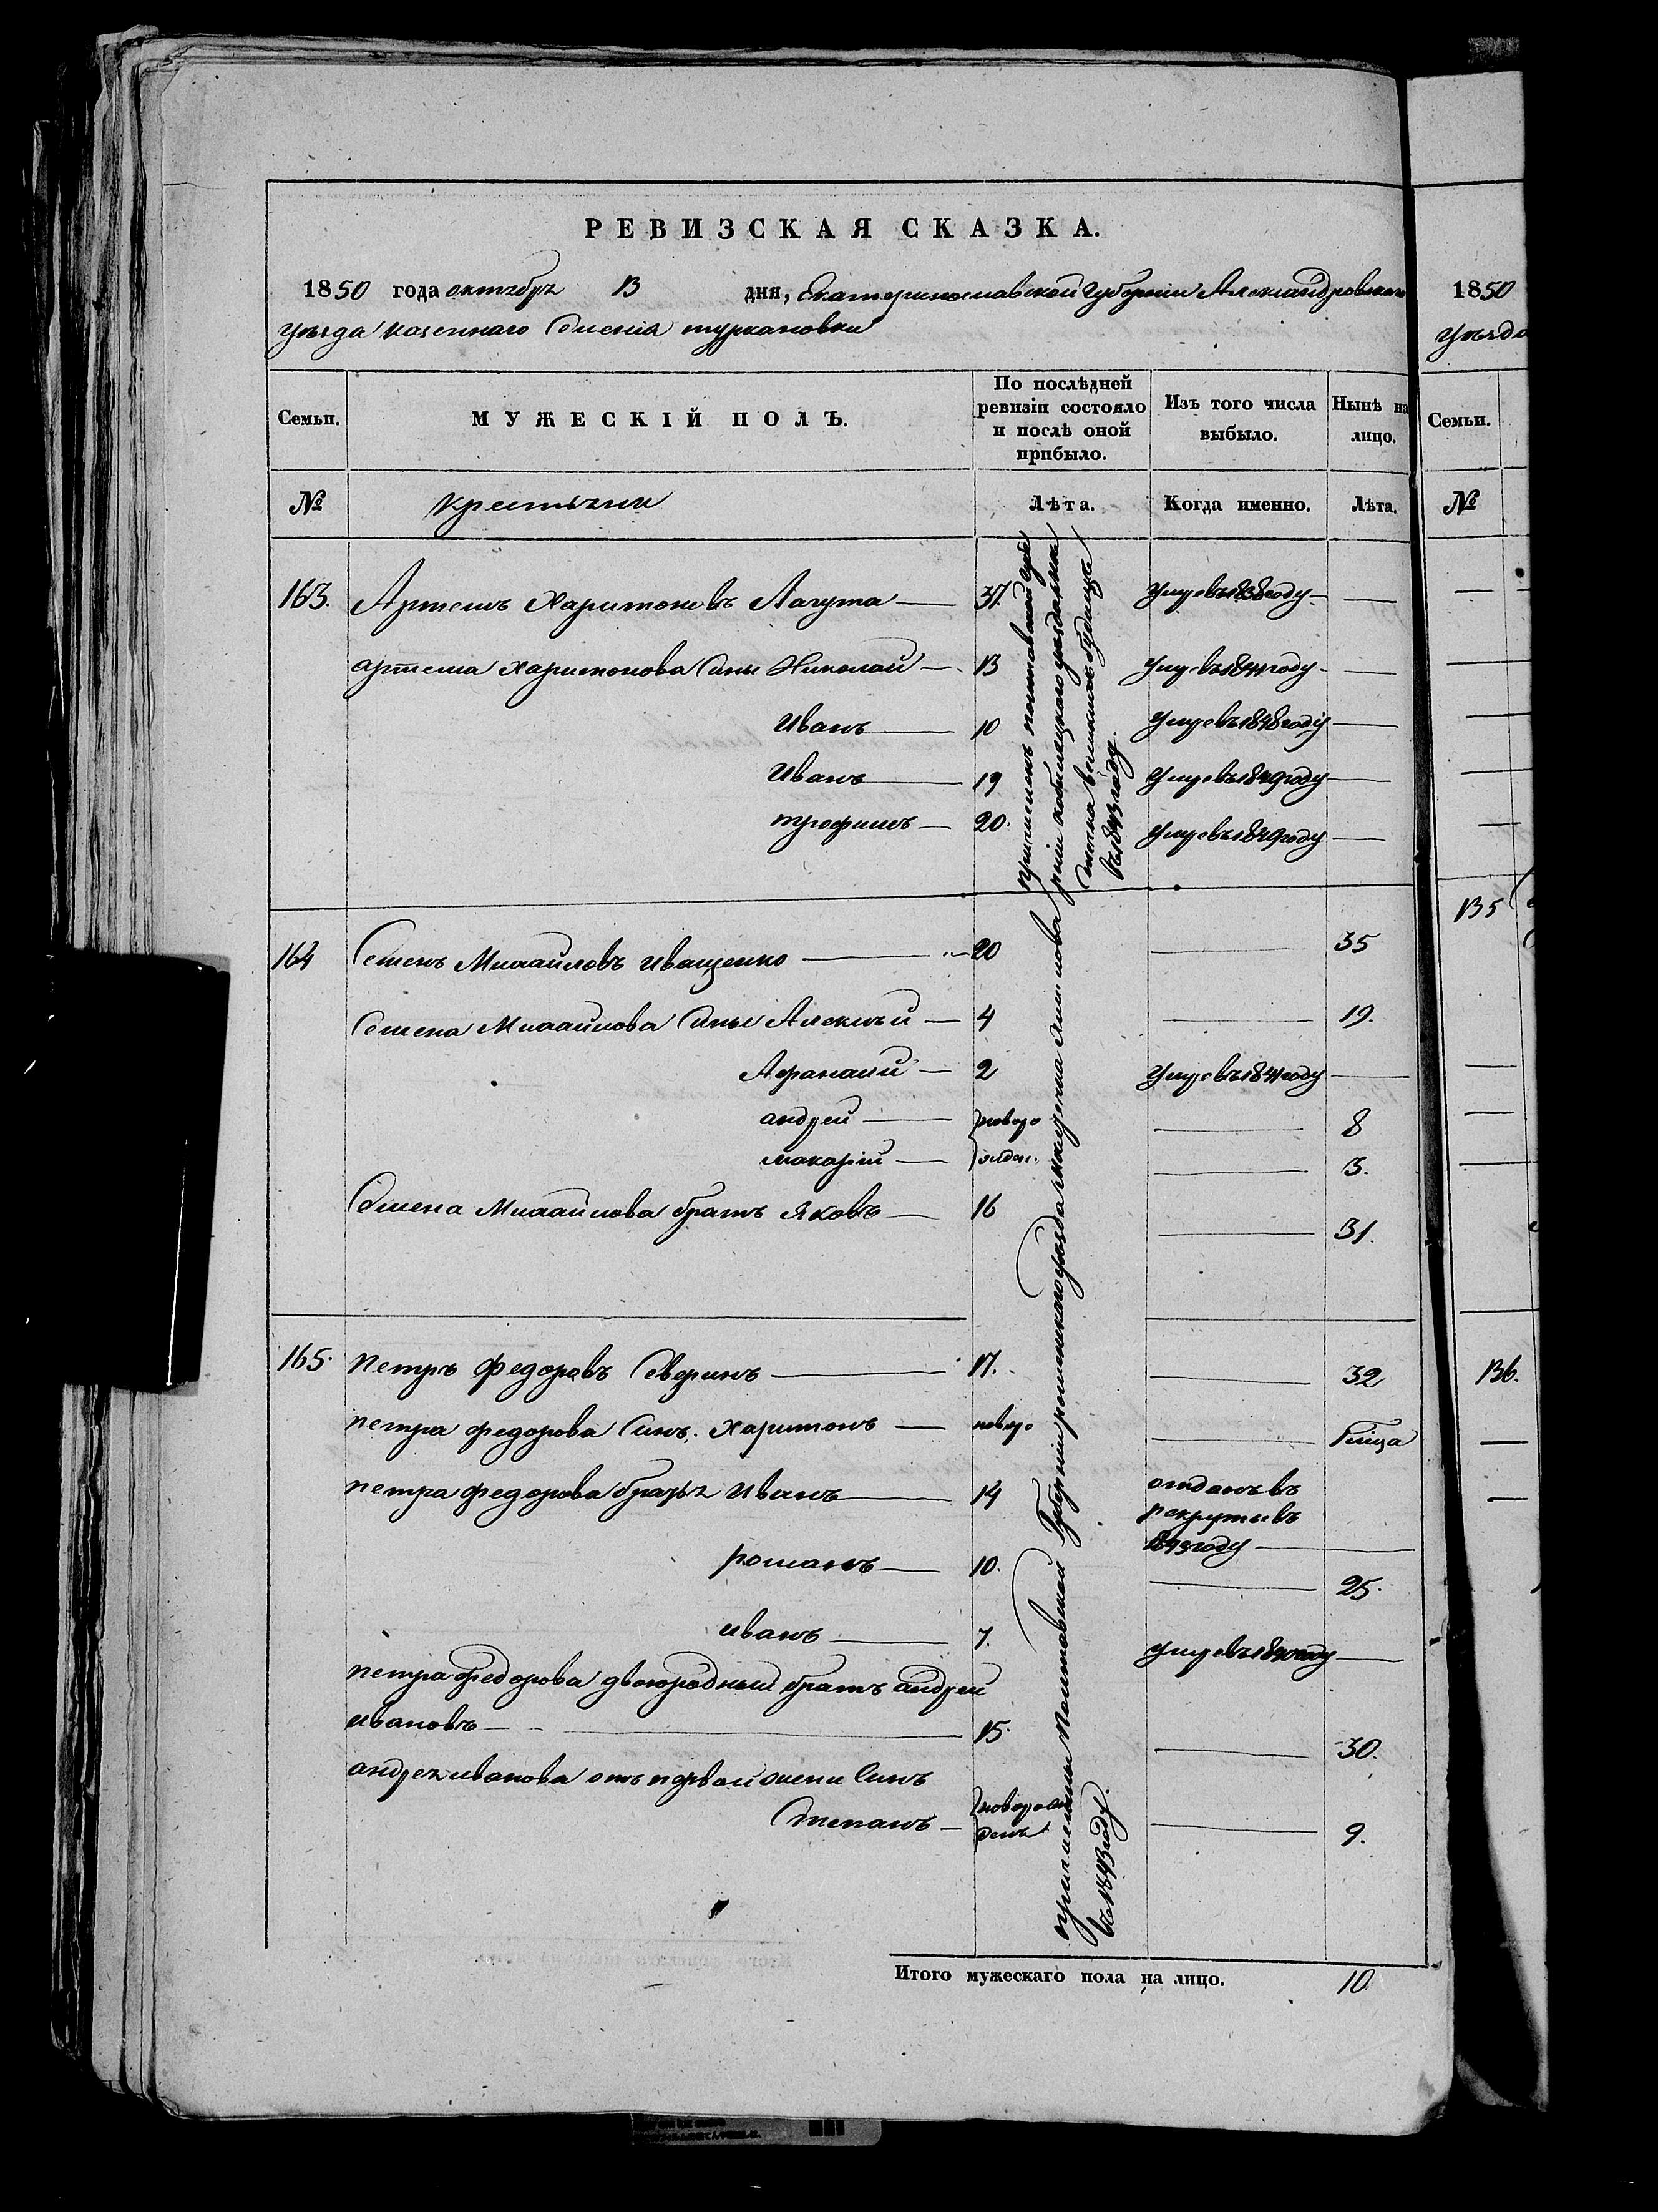 РЕВИЗСКАЯ СКАЗКА.
1850 года октября 13 дня, Екатеринославской Губернии Александровского
уѣзда казеннаго Селенія туркановки
Семьи. МУЖЕСКІЙ ПОЛЪ. По послѣдней ревизіи состояло и послѣ оной прибыло. Изъ того числа выбыло. Нынѣ на лицо.
№ крестьяни Лѣта. Когда именно. Лѣта.
163. Артемъ Харитоновъ Лагута — 37. умре въ 1838 году —
артема харитонова Сины Николай — 13 умре въ 1841 году —
Иванъ — 10 умре въ 1848 году —
Иванъ — 19 умре въ 1849 году —
трофимъ — 20. умре въ 1849 году —
причисленъ полтавской губе
рніи кобиляцкаго уѣзда
въ 1843 году.
164 Семенъ Михайловъ иващенко — 20 — 35
Семена Михайлова Сины Алексѣй — 4 — 19.
Афанасий — 2 умре въ 1841 году —
андрей — новоро — 8
макарій — жден. — 3.
Семена Михайлова братъ Яковъ — 16 — 31.
165. петръ Федоровъ Сѣверинъ — 17. — 32
петра федорова Синъ. харитонъ — новоро —
петра федорова братья Иванъ — 14 отданъ въ
рекруты въ
1849 году —
романъ — 10. — 25.
иванъ — 7. умре въ 1840 году —
петра федорова двоюродный братъ андрей
ивановъ — 15. — 30.
андрея иванова отъ первой жени Синъ
Степанъ — новорож
денъ — 9.
причислены Полтавской Губерніи роменскаго уѣзда
въ 1843 году.
Итого мужескаго пола на лицо. 10.
1850
уѣзда
Семьи.
№
135
136.